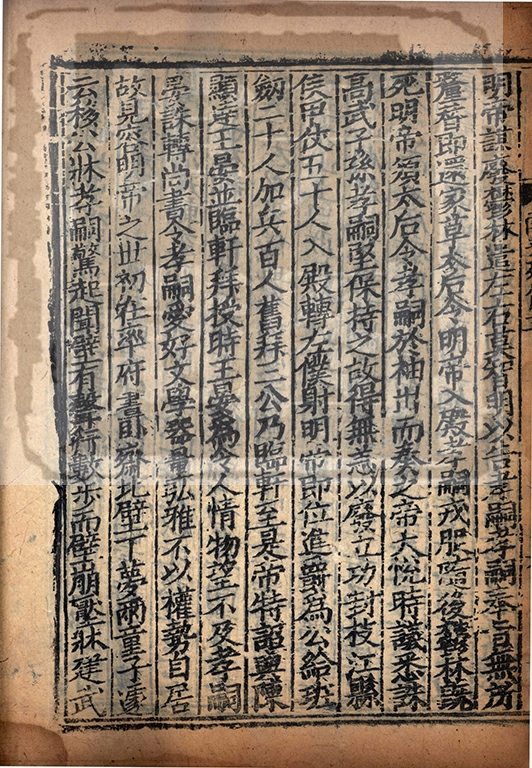 明帝謀廢鬱林遣左右莫智明以告孝嗣孝嗣奉旨無所
釐替即還家草太后令明帝入殿孝嗣戎服隨後鬱林既
死明帝須太后令孝嗣於袖出而奏之帝大悅時議悉誅
高武子孫孝嗣堅保持之故得無恙以廢立功封枝江縣
侯甲仗五十人入殿轉左僕射明帝即位進爵為公給班
劒二十人加兵百人舊拜三公乃臨軒至是帝特詔與陳
顯達王晏並臨軒拜授時王晏為令人情物望不及孝嗣
晏誅轉尚書令孝嗣愛好文學器量弘雅不以權勢自居
故見容明帝之世初在率府晝卧齋北壁下夢兩童子遽
云移公牀孝嗣驚起聞壁有聲行數步而壁崩壓牀建武